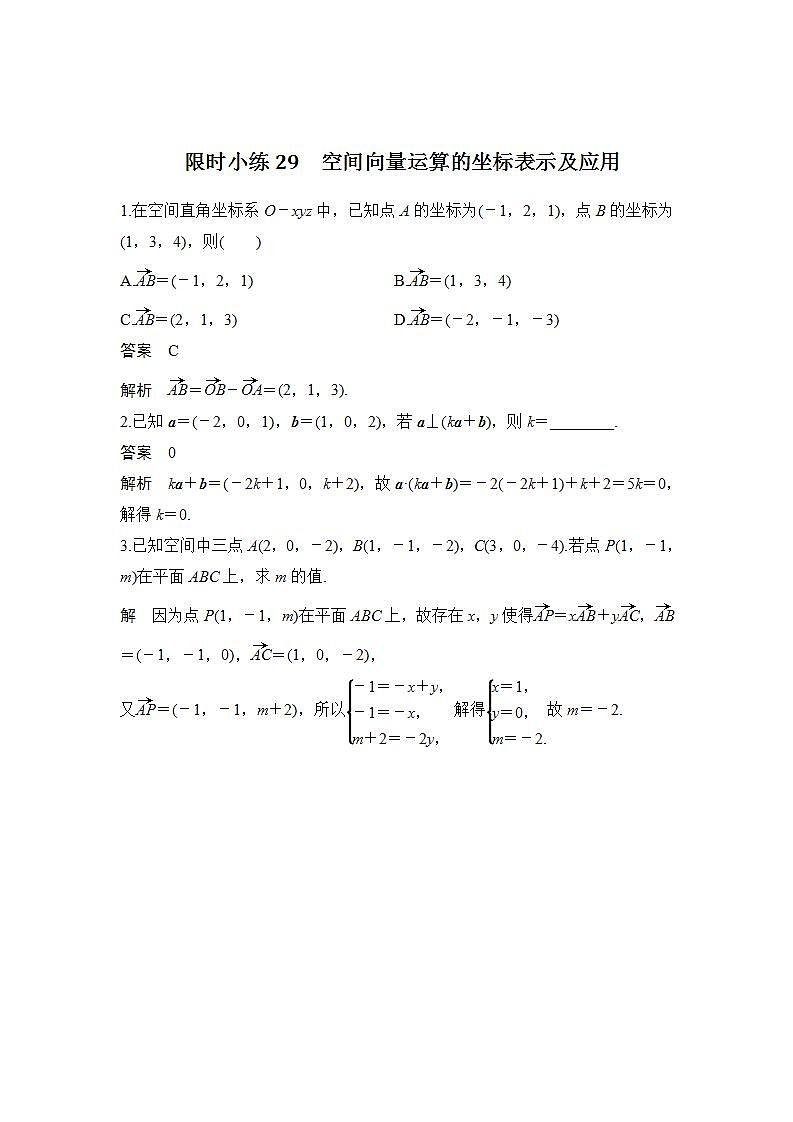 限时小练29　空间向量运算的坐标表示及应用
1.在空间直角坐标系O－xyz中，已知点A的坐标为(－1，2，1)，点B的坐标为
(1，3，4)，则(　　)
A.\overrightarrow{AB}＝(－1，2，1)　　B.\overrightarrow{AB}＝(1，3，4)
C.\overrightarrow{AB}＝(2，1，3)　　D.\overrightarrow{AB}＝(－2，－1，－3)
答案　C
解析　\overrightarrow{AB}＝\overrightarrow{OB}－\overrightarrow{OA}＝(2，1，3).
2.已知a＝(－2，0，1)，b＝(1，0，2)，若a⊥(ka＋b)，则k＝________.
答案　0
解析　ka＋b＝(－2k＋1，0，k＋2)，故a·(ka＋b)＝－2(－2k＋1)＋k＋2＝5k＝0，
解得k＝0.
3.已知空间中三点A(2，0，－2)，B(1，－1，－2)，C(3，0，－4).若点P(1，－1，
m)在平面ABC上，求m的值.
解　因为点P(1，－1，m)在平面ABC上，故存在x，y使得\overrightarrow{AP}＝x\overrightarrow{AB}＋y\overrightarrow{AC}，\overrightarrow{AB}
＝(－1，－1，0)，\overrightarrow{AC}＝(1，0，－2)，
又\overrightarrow{AP}＝(－1，－1，m＋2)，所以{－1＝－x＋y，－1＝－x，m＋2＝－2y，解得{x＝1，y＝0，m＝－2.故m＝－2.